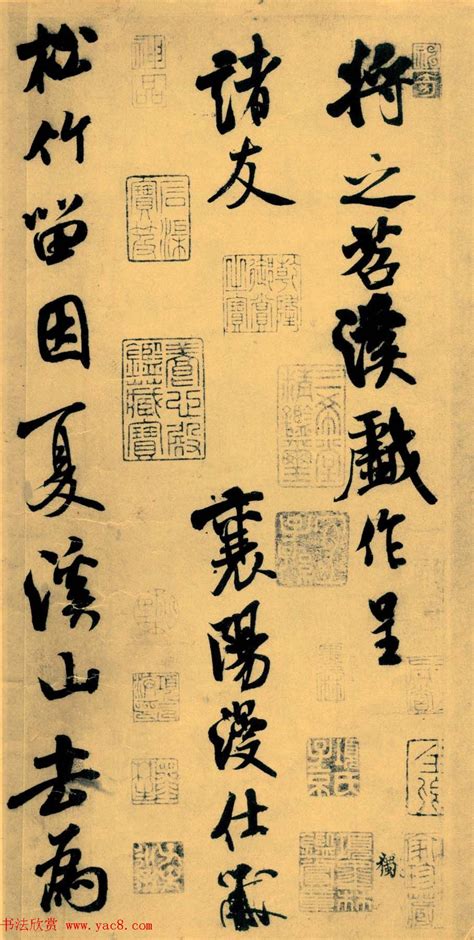 將之苕溪戲作呈
諸友　襄陽漫仕黻
松竹留因夏溪山去為
神品
石渠寶笈
乾隆御賞之寶
養心殿鑑藏寶
三希堂精鑑璽
獨
书法欣赏 www.yac8.com